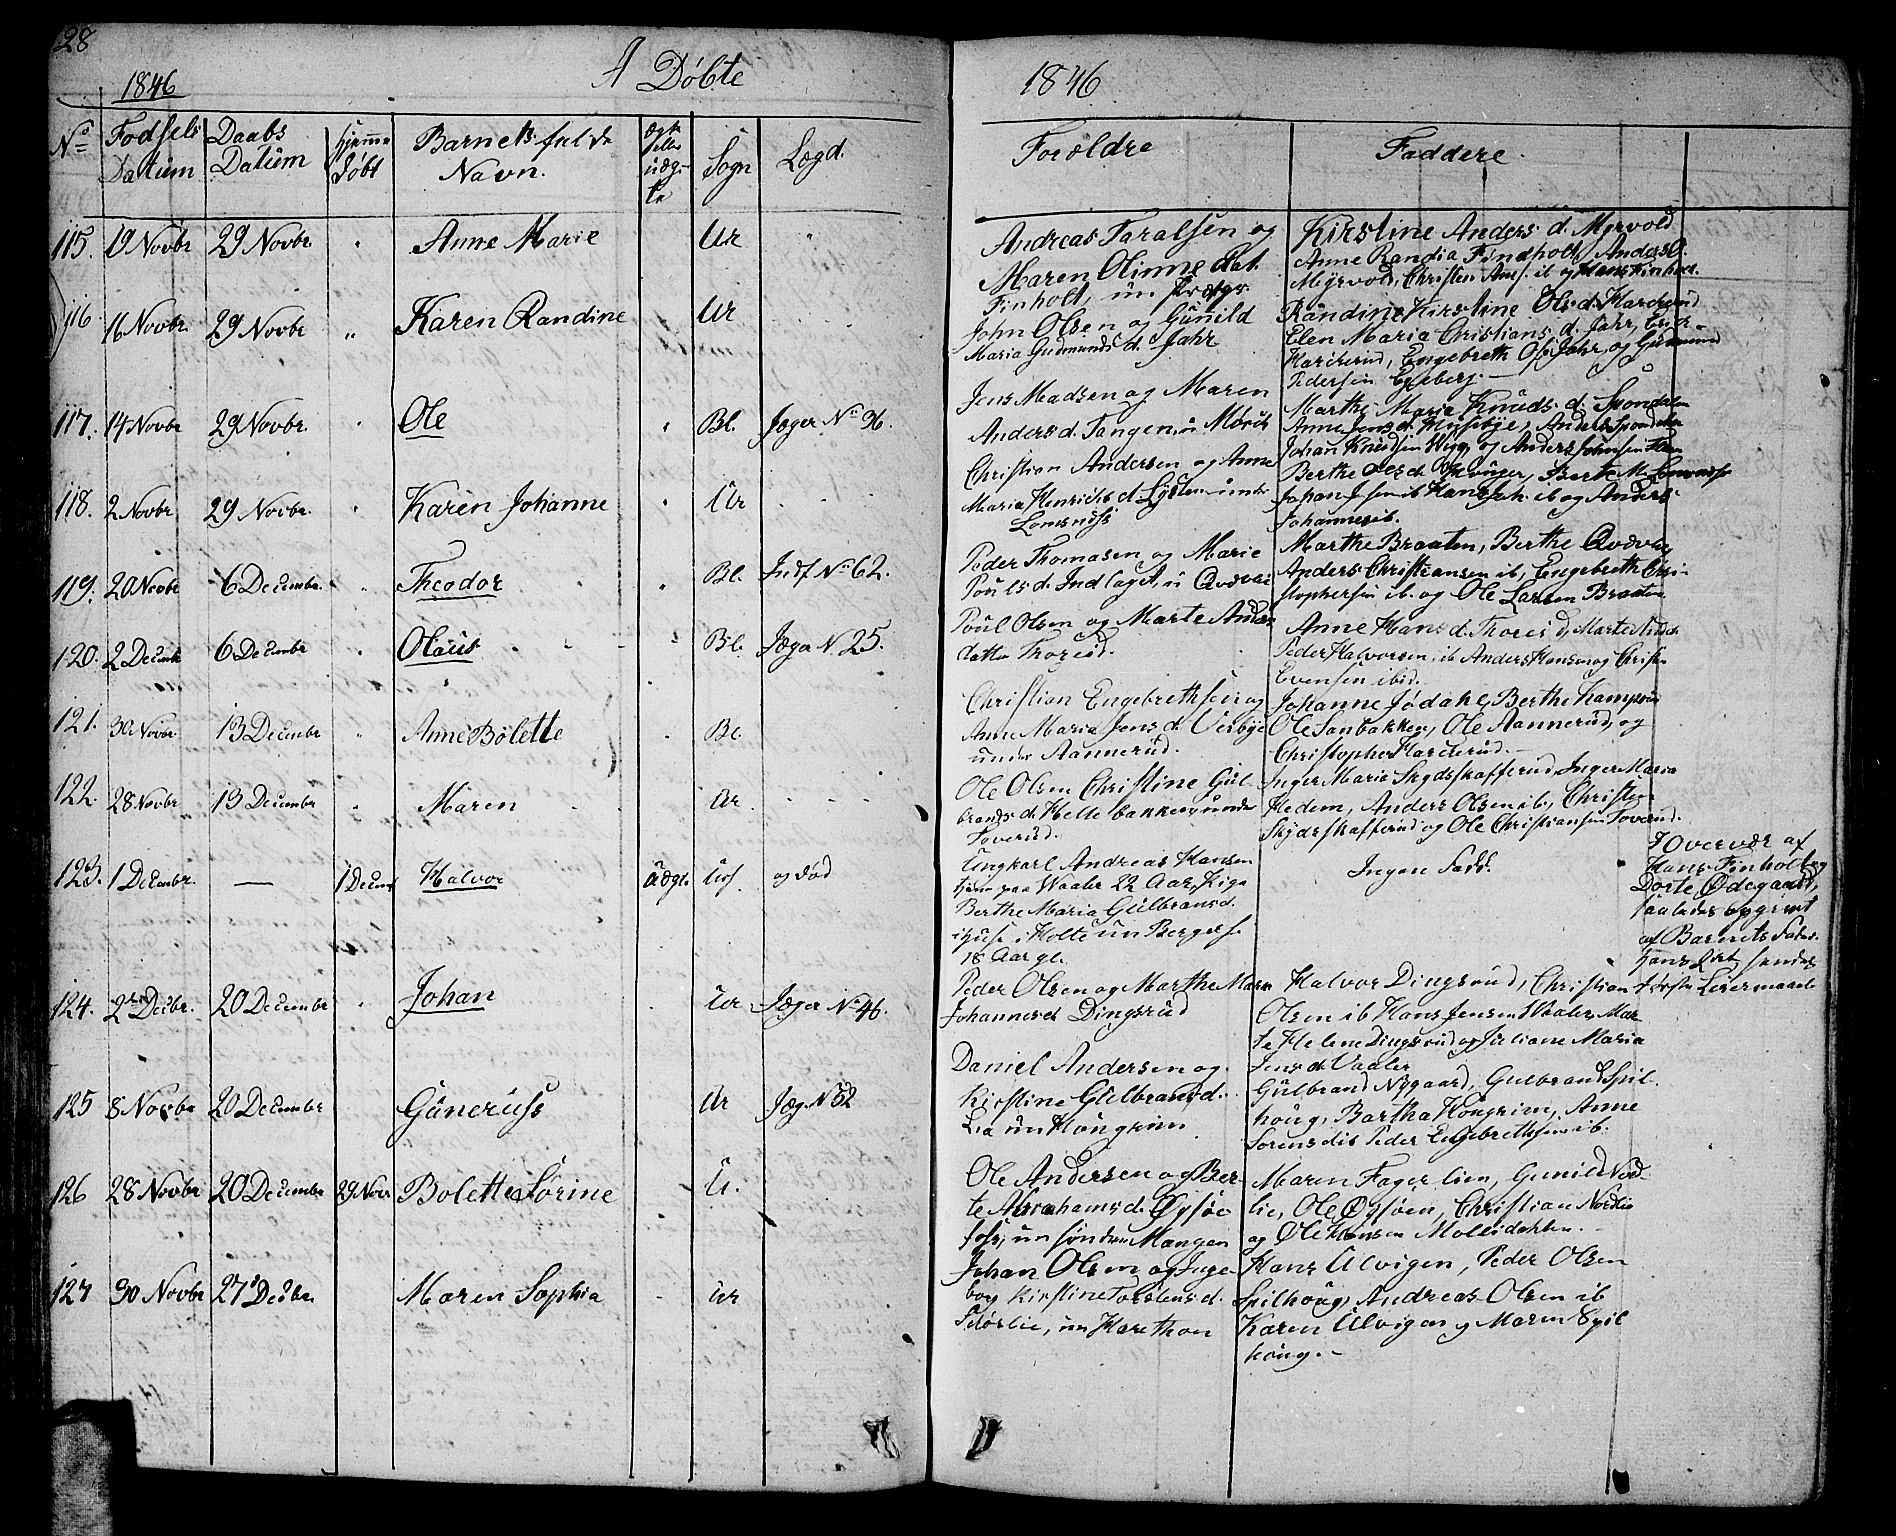 28
1846 A Døbte 1846
No Fødsels Datum Daabs Datum Hjemme døbt Barnets fulde Navn. Ægte eller uægte Sogn Lægd. Forældre Faddere.
115. 19 Novbr 29 Novbr. " Anne Marie Ur "
Andreas Taralsen og
Maren Olinne
Finholt, un
Kirstine Anders d. Myrvold
Anne Randia Findholt, Anders O.
Myrvold, Christen And. ib og Hans Finholt.
116 16 Novbr. 29 Novbr " Karen Randine Ur
John Olsen og Gunild
Maria Gudmunds d. Jahr
Randine Kirstine Ols d. Harterud
Elen Maria Christians d. Jahr, Erik
Harterud, Engebreth Ols. Jahr, og Gudmund
Pedersen Egeberg.
117. 14 Novbr 29 Novbr. " Ole " Bl. Jæger No 36.
Jens Madsen og Maren
Anders d. Tangen, u
Marthe Maria Knuds d. Spondalen
Anne Jens d. Mysebye, Anders Spondalen
Johan Knudsen Wigg og Anders Johnsen
118. 2 Novbr 29 Novbr. " Karen Johanne " Ur
Christian Andersen og Anne
Maria Henrichs d. under
Lomsnæss
Berthe Ols d.
Johan J.sen ib Hans Joh. ib og Anders
Johannes ib.
119. 20 Novbr 6 Decembr. " Theodor " Bl. Indf No 62.
Peder Thomasen og Marie
Pouls d. Indlaget, u
Marthe Braaten, Berthe
Anders Christiansen ib, Engebreth Chri-
stophersen ib. og Ole Larsen Braaten
120. 2 Decembr 6 Decembr " Olaus " Bl. Jæger N. 25.
Poul Olsen og Marte Anders
datter Thorud.
Anne Hans d. Thorud, Marte Anders
Peder Halvorsen, ib Anders Hansen og Christen
Evensen ibid.
121. 30 Novbr 13 Decembr " Anne Bolette " Bl.
Christian Engebrethsen og
Anne Maria Jens d. Veibye
under Aannerud.
Johanne Jødahl, Berthe Kamperud
Ole Sanbakken, Ole Aannerud, og
Christopher Harterud.
122. 28 Novbr 13 Decembr " Maren Ur.
Ole Olsen Christine Gul
brands d. Hellebakken under
Toverud.
Inger Maria Skydskafferud Inger Maria
Hedem, Anders Olsen ib., Christen
Skydskafferud og Ole Christiansen Toverud.
123. 1 Decembr. — 1 Decem Halvor Uægte Urs. og død
Ungkarl Andreas Hansen
hjem paa Waaler 22 Aar, Pige
Berthe Maria Gulbransd.
i huse i Holte un Bergels
18 Aar gl.
Ingen Fadd.
I Overvær af
Hans Finholt og
Dorte Ødegaard,
saaledes opgivet
af Barnets Fader
første Leiermaal
124. 2den Decbr. 20 Decembr " Johan Ur Jæger No 46.
Peder Olsen og Marthe Maria
Johannes d. Dingsrud
Halvor Dingsrud, Christian
Olsen ib Hans Jensen Waaler, Mar
te Helene Dingsrud og Juliane Maria
Jens d. Vaaler
125 8 Novbr 20 Decembr Gunerius Ur Jæg. N 52
Daniel Andersen og
Kirstine Gulbrans d.
Lia un Hongrim
Gulbrand Nygaard, Gulbrand Spil
houg, Bartha Hongrim, Anne
Sørensd ib Peder Engebrethsen ib.
126 28 Novbr 20 Decembr 29 Nov Bolette Sørine U.
Ole Andersen og Ber-
te Abrahams d. Øgsøe
foss, un søndre Mangen
Maren Fager lien, Gunild Nord-
lie, Ole Øgsøen, Christian Nordlie
og Ole Hansen Mollidalen.
127 30 Novbr 27 Decbr. Maren Sophia - Ur
Johan Olsen og Inge
borg Kirstine Torstens d.
Sørlie, un Harethon
Hans Ulvigen, Peder Olsen
Spilhoug, Andreas Olsen ib
Karen Ulvigen og Maren Spil
houg. -